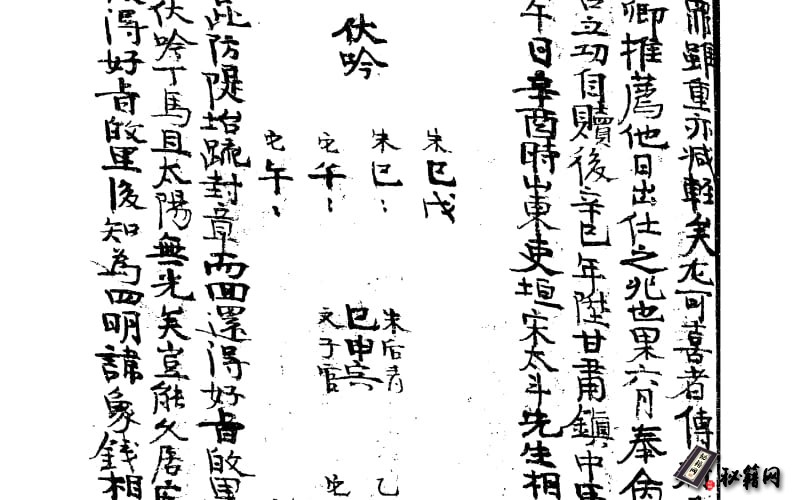 罪雖重亦减輕矣尤可喜者傳
卿推薦他日出仕之兆也果六月奉
立功自贖後辛巳年陞甘肅鎮中
午日辛酉時山東吏垣宋太斗先生相
朱巳戊
伏吟 朱巳：
它午：
它午：
朱后青
巳申亥
文子官
乙
此防隄抬疏封章而回還得好音的里
伏吟丁馬且太陽無光矣豈能久居
得好音的里後知為四明諱象錢相
秘籍网